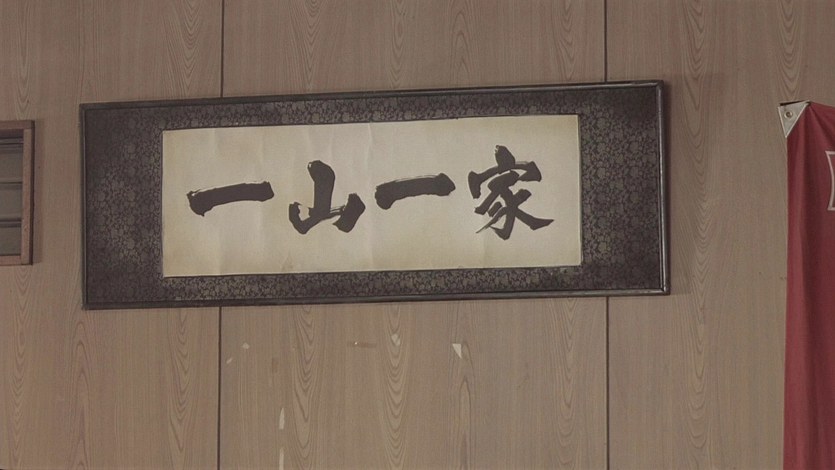 一山一家